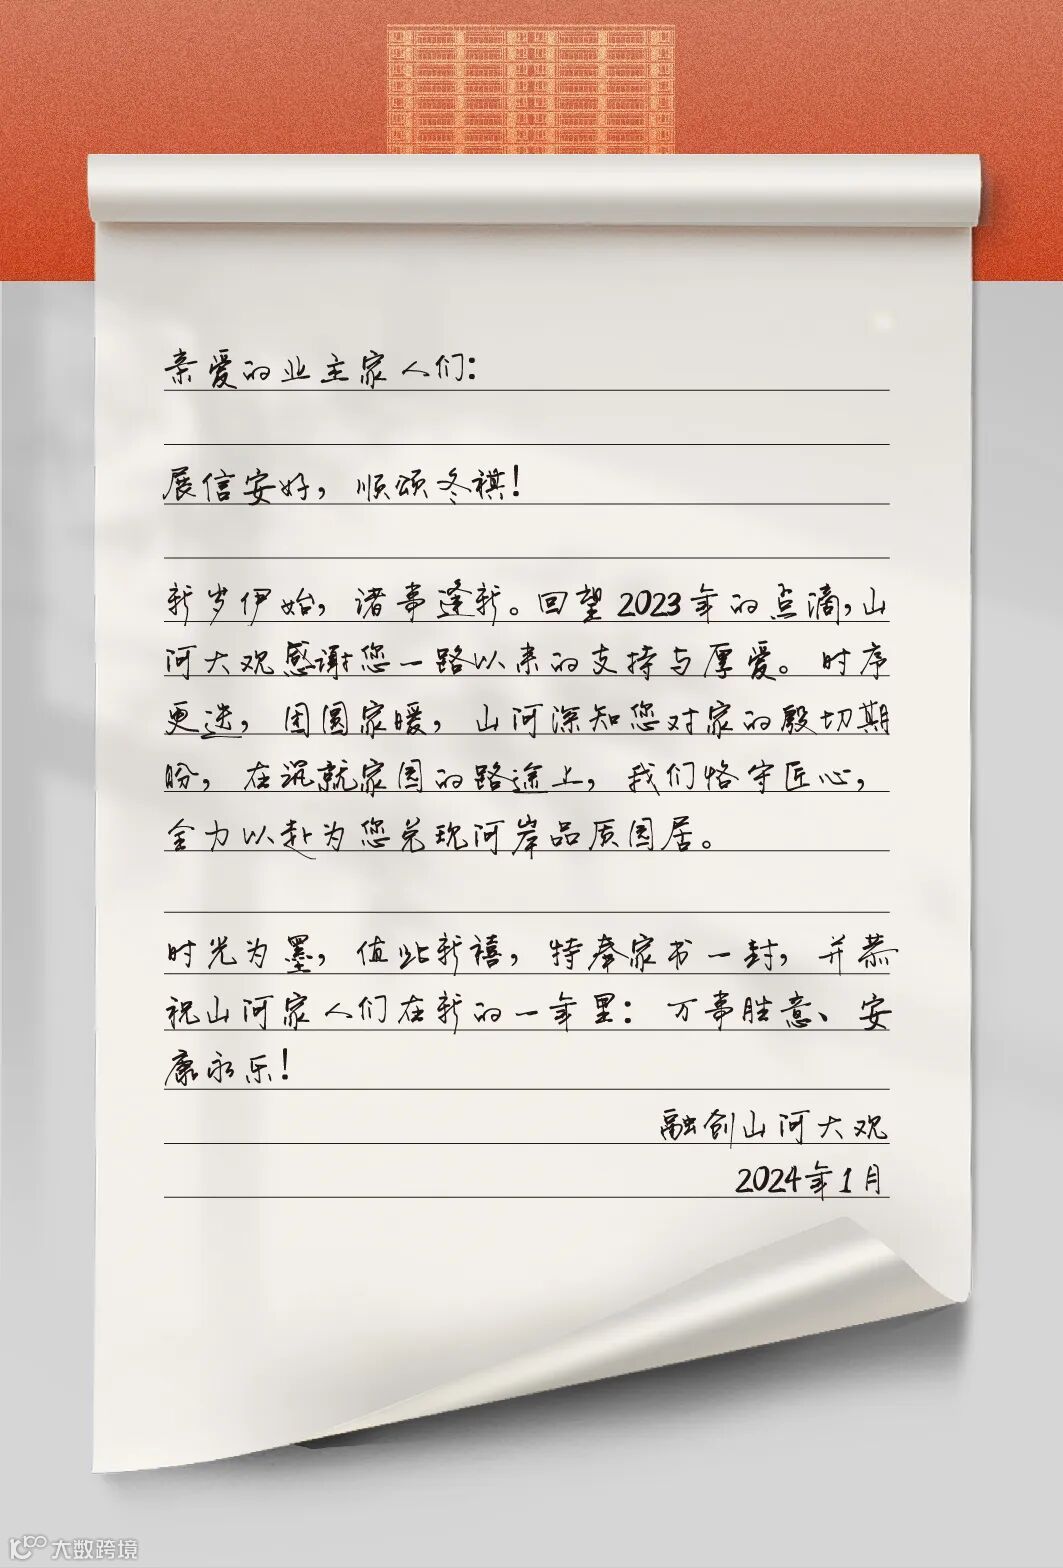 亲爱的业主家人们：
展信安好，顺颂冬祺！
新岁伊始，诸事逢新。回望2023年的点滴，山
河大观感谢您一路以来的支持与厚爱。时序
更迭，团圆家暖，山河深知您对家的殷切期
盼，在筑就家园的路途上，我们恪守匠心，
全力以赴为您兑现河岸品质园居。
时光为墨，值此新禧，特奉家书一封，并恭
祝山河家人们在新的一年里：万事胜意、安
康永乐！
融创山河大观
2024年1月
大数跨境